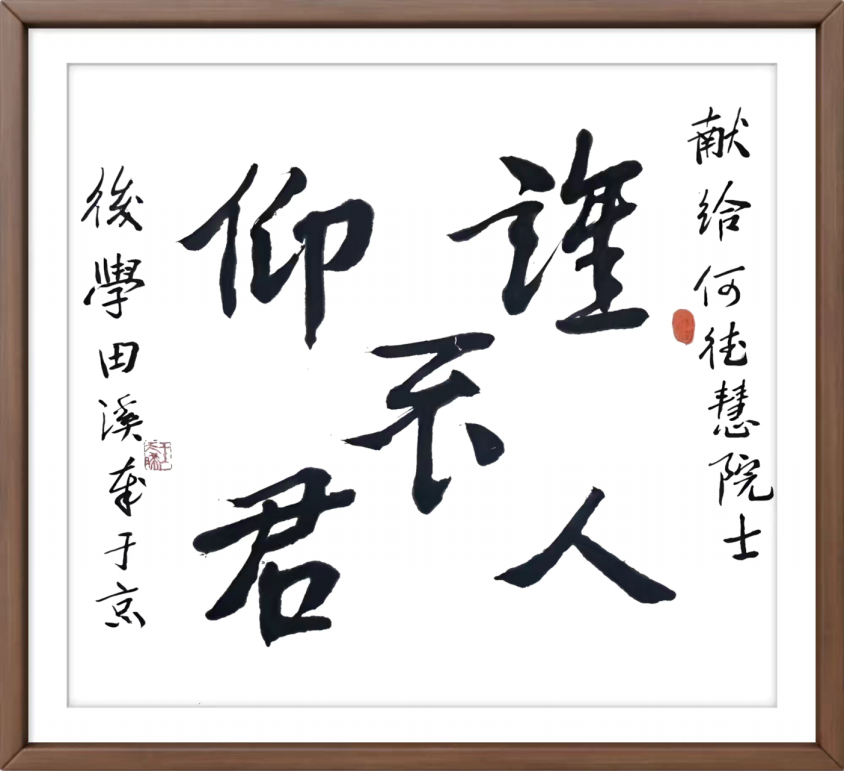 献给何德慧院士
誰人不仰君
後學田溪奉于京